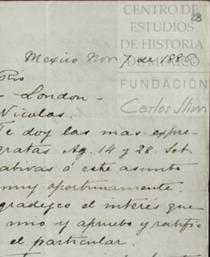 CENTRO DE
ESTUDIOS
DE HISTORIA
DE MÉXICO
FUNDACIÓN
Carlos Slim
28
Mexico Nov 7 de 1886
Rio
- London -
Nicolas.
Te doy las mas expre-
gratas Ag. 14 y 28. Set
ativas á este asunto
muy oportunamente.
gradezco el interés que
mio y apruebo y ratifi
el particular.